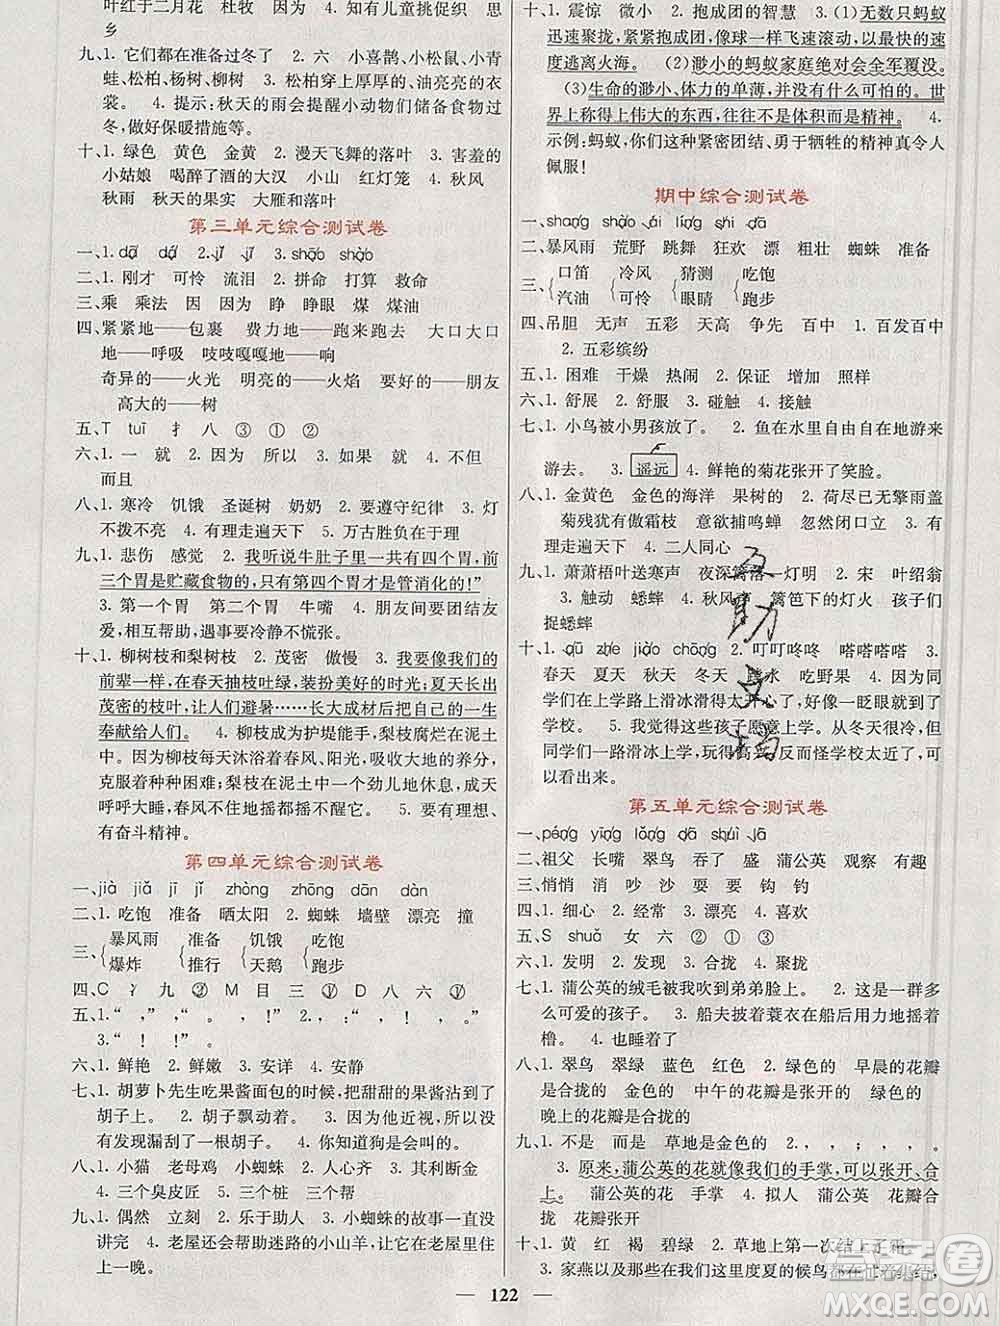 叶红于二月花　杜牧　4. 知有儿童挑促织　思
乡
九、1. 它们都在准备过冬了　2. 六　小喜鹊、小松鼠、小青
蛙、松柏、杨树、柳树　3. 松柏穿上厚厚的、油亮亮的衣
裳。　4. 提示：秋天的雨会提醒小动物们储备食物过
冬，做好保暖措施等。
十、1. 绿色　黄色　金黄　2. 漫天飞舞的落叶　3. 害羞的
小姑娘　喝醉了酒的大汉　小山　红灯笼　4. 秋风
秋雨　秋天的果实　大雁和落叶
第三单元综合测试卷
一、1. dā　dá　2. jī　jǐ　3. shāo　shào
二、1. 刚才　可怜　流泪　2. 拼命　打算　救命
三、乘　乘法　因　因为　睁　睁眼　煤　煤油
四、紧紧地——包裹　费力地——跑来跑去　大口大口
地——呼吸　吱吱嘎嘎地——响
奇异的——火光　明亮的——火焰　要好的——朋友
高大的——树
五、T　tuī　扌　八　③　①　②
六、1. 一　就　2. 因为　所以　3. 如果　就　4. 不但
而且
八、1. 寒冷　饥饿　圣诞树　奶奶　2. 要遵守纪律　3. 灯
不拨不亮　4. 有理走遍天下　5. 万古胜负在于理
九、1. 悲伤　感觉　2. 我听说牛肚子里一共有四个胃，前
三个胃是贮藏食物的，只有第四个胃才是管消化的！”
3. 第一个胃　第二个胃　牛嘴　4. 朋友间要团结友
爱，相互帮助，遇事要冷静不慌张。
十、1. 柳树枝和梨树枝　2. 茂密　傲慢　3. 我要像我们的
前辈一样，在春天抽枝吐绿，装扮美好的时光；夏天长出
茂密的枝叶，让人们避暑……长大成材后把自己的一生
奉献给人们。　4. 柳枝成为护堤能手，梨枝腐烂在泥土
中。因为柳枝每天沐浴着春风、阳光，吮吸大地的养分，
克服种种困难；梨枝在泥土中一个劲儿地休息，每天
呼呼大睡，春风不住地摇都摇不醒它。　5. 要有理想、
有奋斗精神。
第四单元综合测试卷
一、jià　jiǎ　jī　jǐ　zhòng　zhōng　dān　dàn
二、1. 吃饱　准备　晒太阳　2. 蜘蛛　墙壁　漂亮　撞
三、{暴风雨　{准备　{饥饿　{吃饱
爆炸　推行　天鹅　跑步
四、C　氵　九　②　M　目　三　①　D　犭　八　六　①
五、1. “　，”　，“　。”　2. ，“　！　，　！　。”
六、1. 鲜艳　2. 鲜嫩　3. 安详　4. 安静
七、1. 胡萝卜先生吃果酱面包的时候，把甜甜的果酱沾到了
胡子上。　2. 胡子飘动着。　3. 因为他近视，所以就
没有发现漏刮了一根胡子。　4. 你知道狗是会叫的。
八、1. 小猫　老母鸡　小蜘蛛　2. 人心齐　3. 其利断金
4. 三个臭皮匠　5. 三个桩　三个帮
九、1. 偶然　立刻　2. 乐于助人　3. 小蜘蛛的故事一直没
讲完　4. 老屋还会帮助迷路的小山羊，让它在老屋里住
上一晚。
十、1. 震惊　微小　2. 抱成团的智慧　3. (1)无数只蚂蚁
迅速聚拢，紧紧抱成团，像球一样飞速滚动，以最快的速
度逃离火海。　(2)渺小的蚂蚁家庭绝对会全军覆没。
(3)生命的渺小、体力的单薄，并没有什么可怕的。世
界上称得上伟大的东西，往往不是体积而是精神。　4.
示例：蚂蚁，你们这种紧密团结、勇于牺牲的精神真令人
佩服！
期中综合测试卷
一、shang　shào　ái　líng　shi　dā
二、暴风雨　荒野　跳舞　狂欢　漂　粗壮　蜘蛛　准备
三、{口笛　{冷风　{猜测　{吃饱
汽油　可怜　眼睛　跑步
四、吊胆　无声　五彩　天高　争先　百中　1. 百发百中
2. 五彩缤纷
五、1. 困难　干燥　热闹　2. 保证　增加　照样
六、1. 舒展　2. 舒服　3. 碰触　4. 接触
七、1. 小鸟被小男孩放了。　2. 鱼在水里自由自在地游来
游去。　3. 遥远　4. 鲜艳的菊花张开了笑脸。
八、1. 金黄色　金色的海洋　果树的　2. 荷尽已无擎雨盖
菊残犹有傲霜枝　意欲捕鸣蝉　忽然闭口立　3. 有
理走遍天下　4. 二人同心
九、1. 萧萧梧叶送寒声　夜深篱落一灯明　2. 宋　叶绍翁
3. 触动　蟋蟀　4. 秋风　篱笆下的灯火　孩子们
捉蟋蟀
十、1. qū　zhe　jiào　chōng　2. 叮叮咚咚　嗒嗒嗒嗒　3.
春天　夏天　秋天　冬天　踏水　吃野果　4. 因为同
学们在上学路上滑冰滑得太开心了，好像一眨眼就到了
学校。　5. 我觉得这些孩子愿意上学。从冬天很冷，但
同学们一路滑冰上学，玩得高兴反而怪学校太近了，可
以看出来。
第五单元综合测试卷
一、péng　yīng　lǒng　dā　shuì　jā
二、祖父　长嘴　翠鸟　吞了　盛　蒲公英　观察　有趣
三、悄悄　消　吵　沙　耍　要　钩　钓
四、1. 细心　2. 经常　3. 漂亮　4. 喜欢
五、S　shuǎ　女　六　②　①　③
六、1. 发明　2. 发现　3. 合拢　4. 聚拢
七、1. 蒲公英的绒毛被我吹到弟弟脸上。　2. 这是一群多
么可爱的孩子。　3. 船夫披着蓑衣在船后用力地摇着
橹。　4. 也睡着了
八、1. 翠鸟　翠绿色　蓝色　红色　2. 绿色的　早晨的花瓣
是合拢的　金色的　中午的花瓣是张开的　绿色的
晚上的花瓣是合拢的
九、1. 不是　而是　草地是金色的　2. ，　，　；　，　。
3. 原来，蒲公英的花就像我们的手掌，可以张开、合
上。　蒲公英的花　手掌　4. 拟人　蒲公英花瓣合
拢　花瓣张开
十、1. 黄　红　褐　碧绿　2. 草地上第一次结上了霜
3. 家燕以及那些在我们这里度夏的候鸟
122
答案圈
MXQE.COM